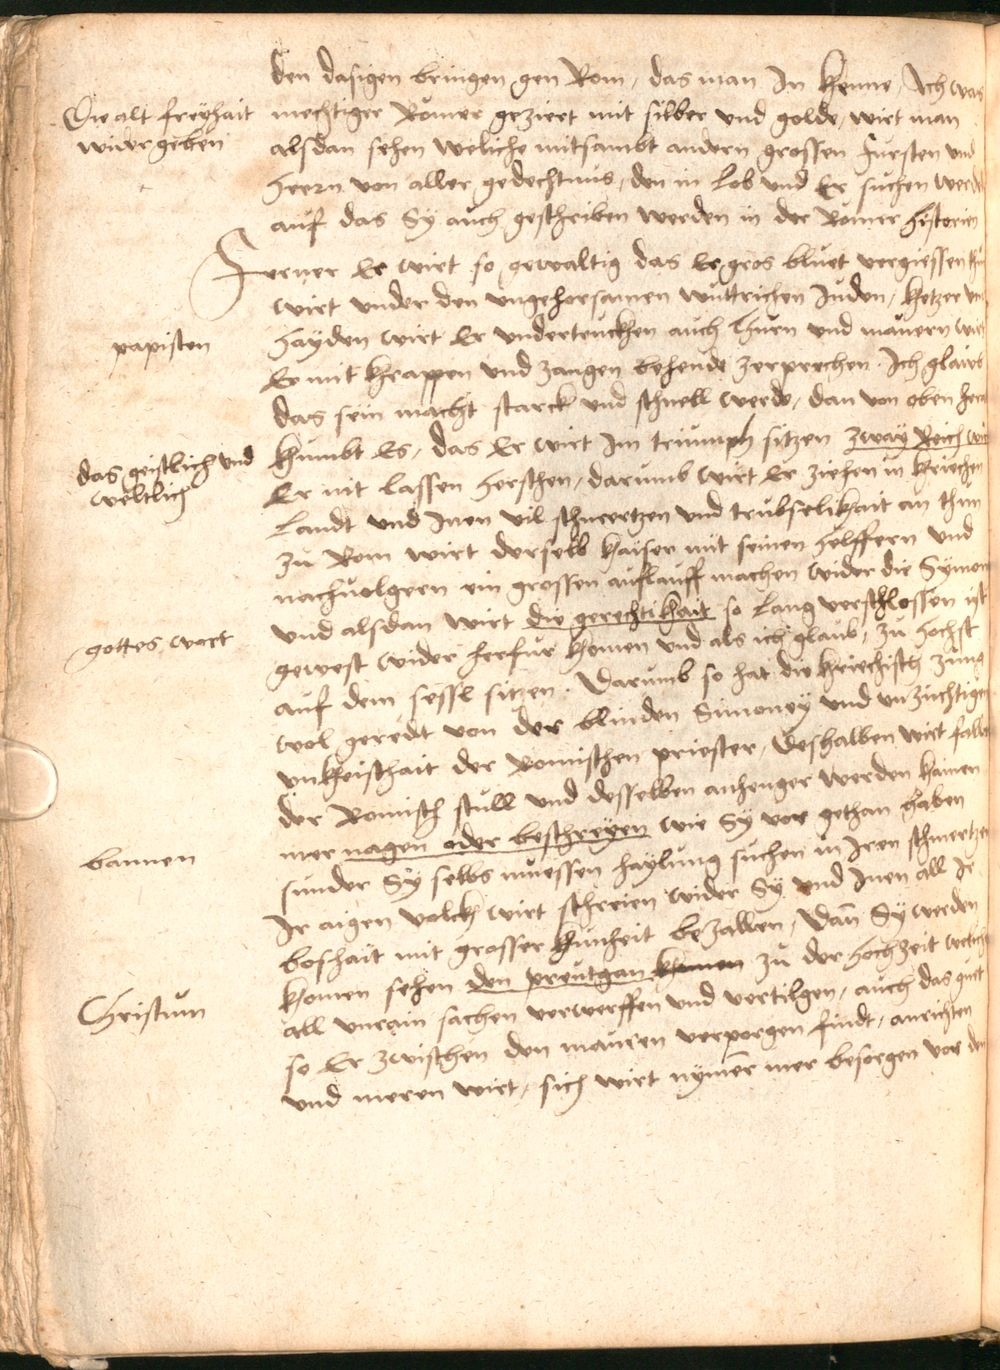 den dasigen bringen gen Rom, das man In khenne, Ach was
Die alt freyhait
widergeben
mechtiger Römer geziert mit silber und golde, wirt man
alsdan sehen weliche mitsambt andern grossen fursten und
herrn von aller gedechtnus, den in Lob und Er suchen werden
auf das Sy auch geschriben werden in der Römer historien
Ferner Er wirt so gewaltig das Er gros bluet vergiessen thun
wirt under den ungehorsamen wuttrichen Juden, khetzer und
papisten
hayden wirt Er undertruckhen auch thurn und mauern wirt
Er mit khrappen und zangen behende zerprechen. Ich glaub
das sein macht starck und schnell werde, dan von oben herab
das geistlich und
weltlich
khumbt Es, das Er wirt Im triumph sitzen zway Reich wirt
Er nit lassen herschen, darumb wirt Er ziehen in khriechen
Landt und Inen vil schmertzen und trubselikhait an thun
zu Rom wirt derselb khaiser mit seinen helffern und
nachvolgern ein grossen auflauff machen wider die Symoney
gottes wort
und alsdan wirt die gerechtikhait so lang verschlossen ist
gewest wider herfur khomen und als ich glaub, zu hochst
auf dem sessl sitzen. Darumb so hat die khriechisch zung
wol geredt von der blinden Simoney und unzuchtigen
unkheischait der Romischen priester, deshalben wirt fallen
der Romisch stull und desselben anhenger werden kainen
bannen
mer nagen oder beschreyen wie Sy vor gethan haben
sunder Sy selbs muessen haylung suchen in Iren schmertzen
Ir aigen volckh wirt schreien wider Sy und Inen all Ir
boshait mit grosser khunheit bezallen, dan Sy werden
Christum
khomen sehen den preutgan khumen zu der hochzeit welicher
all unrain sachen verwerffen und vertilgen, auch das guet
so Er zwischen den mauren verporgen findt, anrichten
und meren wirt, sich wirt nymer mer besorgen vor den